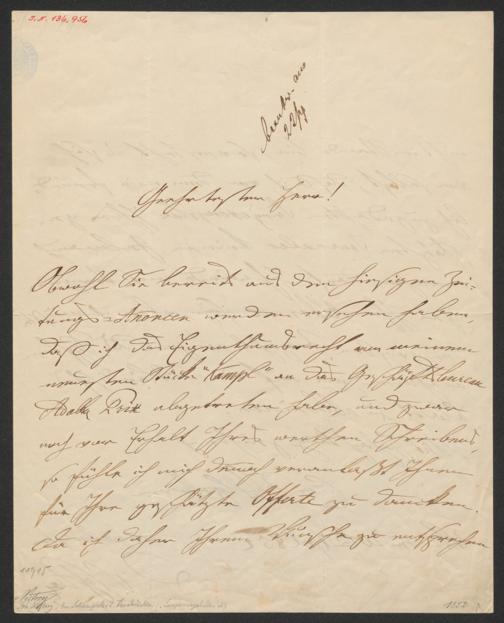 I.N. 136.956
beantw. am
22/9
Geehrtester Herr!
Obwohl Sie bereits aus den hiesigen Zei-
tungs-Anoncen werden ersehen haben,
daß ich das Eigenthumsrecht von meinem
neuesten Stücke "Kampl" an das Geschäftsbureau
Adalb. Prix abgetreten habe, und zwar
noch vor Erhalt Ihres werthen Schreibens,
so fühle ich mich dennoch veranlaßt Ihnen
für Ihre geschätzte Offerte zu danken.
Da ich daher Ihrem Wunsche zu entsprechen
11915
1852